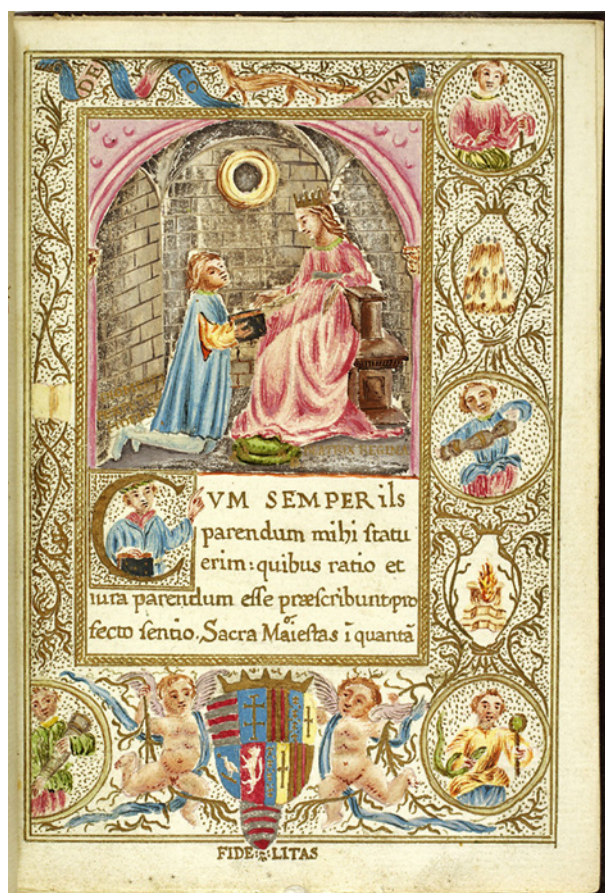 DE CO RVM
CVM SEMPER iis
parendum mihi ſtatu
erim: quibus ratio et
iura parendum eſſe præſcribunt: pro
fecto ſentio, Sacra Maieſtas ī quantā
FIDE LITAS